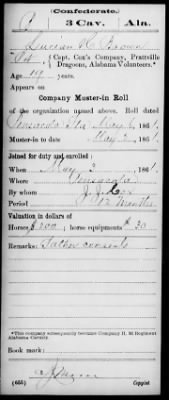 Confederate.
3 Cav. Ala.
Lucian H. Brown
Pvt, Capt. Cox's Company, Prattville
Dragoons, Alabama Volunteers.*
Age 19 years.
Appears on
Company Muster-in Roll
of the organization named above. Roll dated
Pensacola Fla May 6, 1861.
Muster-in to date May 6, 1861.
Joined for duty and enrolled:
When May 3, 1861.
Where Pensacola
By whom J. J. Cox
Period 12 Months
Valuation in dollars of
Horse, $200; horse equipments $ 30
Remarks: Father consents
*This company subsequently became Company H, 3d Regiment
Alabama Cavalry.
Book mark:
(655)
Copyist